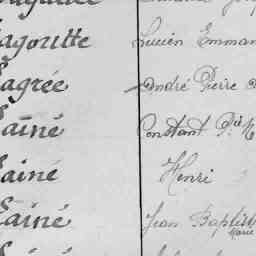 Lagoutte Lucien Emman
Lagrée André Pierre
Lainé Constant
Lainé Henri
Lainé Jean Baptiste
Marie